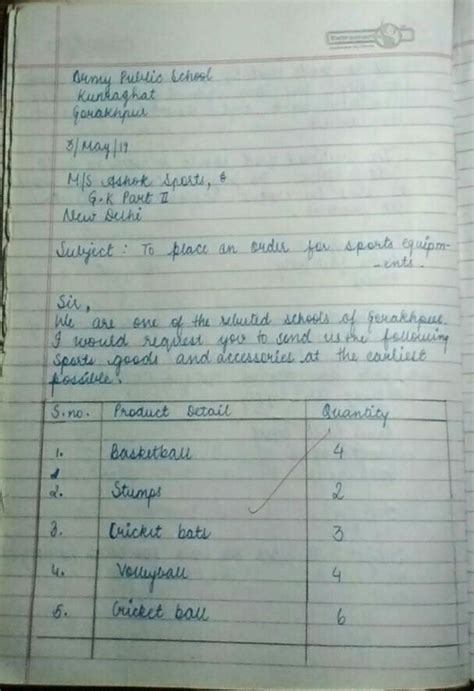 Army Public School
Kunraghat
Gorakhpur
3/May/19
M/S Ashok Sports,
G.K Part II
New Delhi
Subject : To place an order for sports equipm-
-ents.
Sir,
We are one of the reputed schools of Gorakhpur.
I would request you to send us the following
sports goods and accessories at the earliest
possible.
S.no. Product Detail Quantity
1. Basketball 4
2. Stumps 2
3. Cricket bats 3
4. Volleyball 4
5. Cricket ball 6